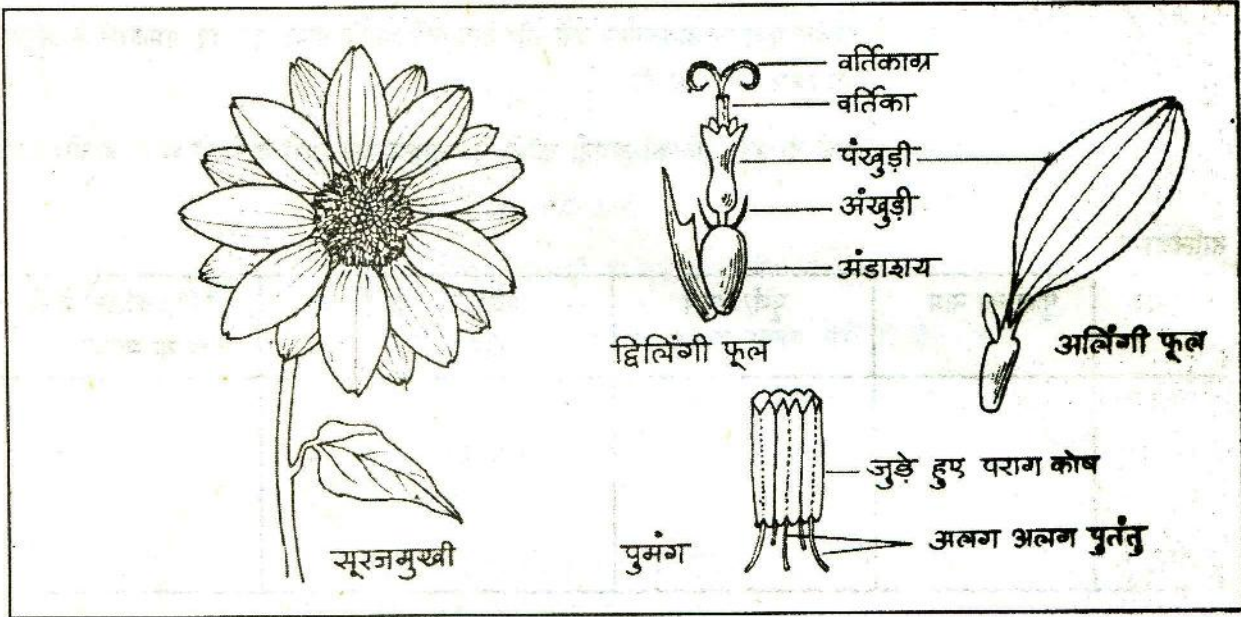 वर्तिकाग्र
वर्तिका
पंखुड़ी
अंखुड़ी
अंडाशय
द्विलिंगी फूल
अलिंगी फूल
जुड़े हुए पराग कोष
अलग अलग पुतंतु
पुमंग
सूरजमुखी